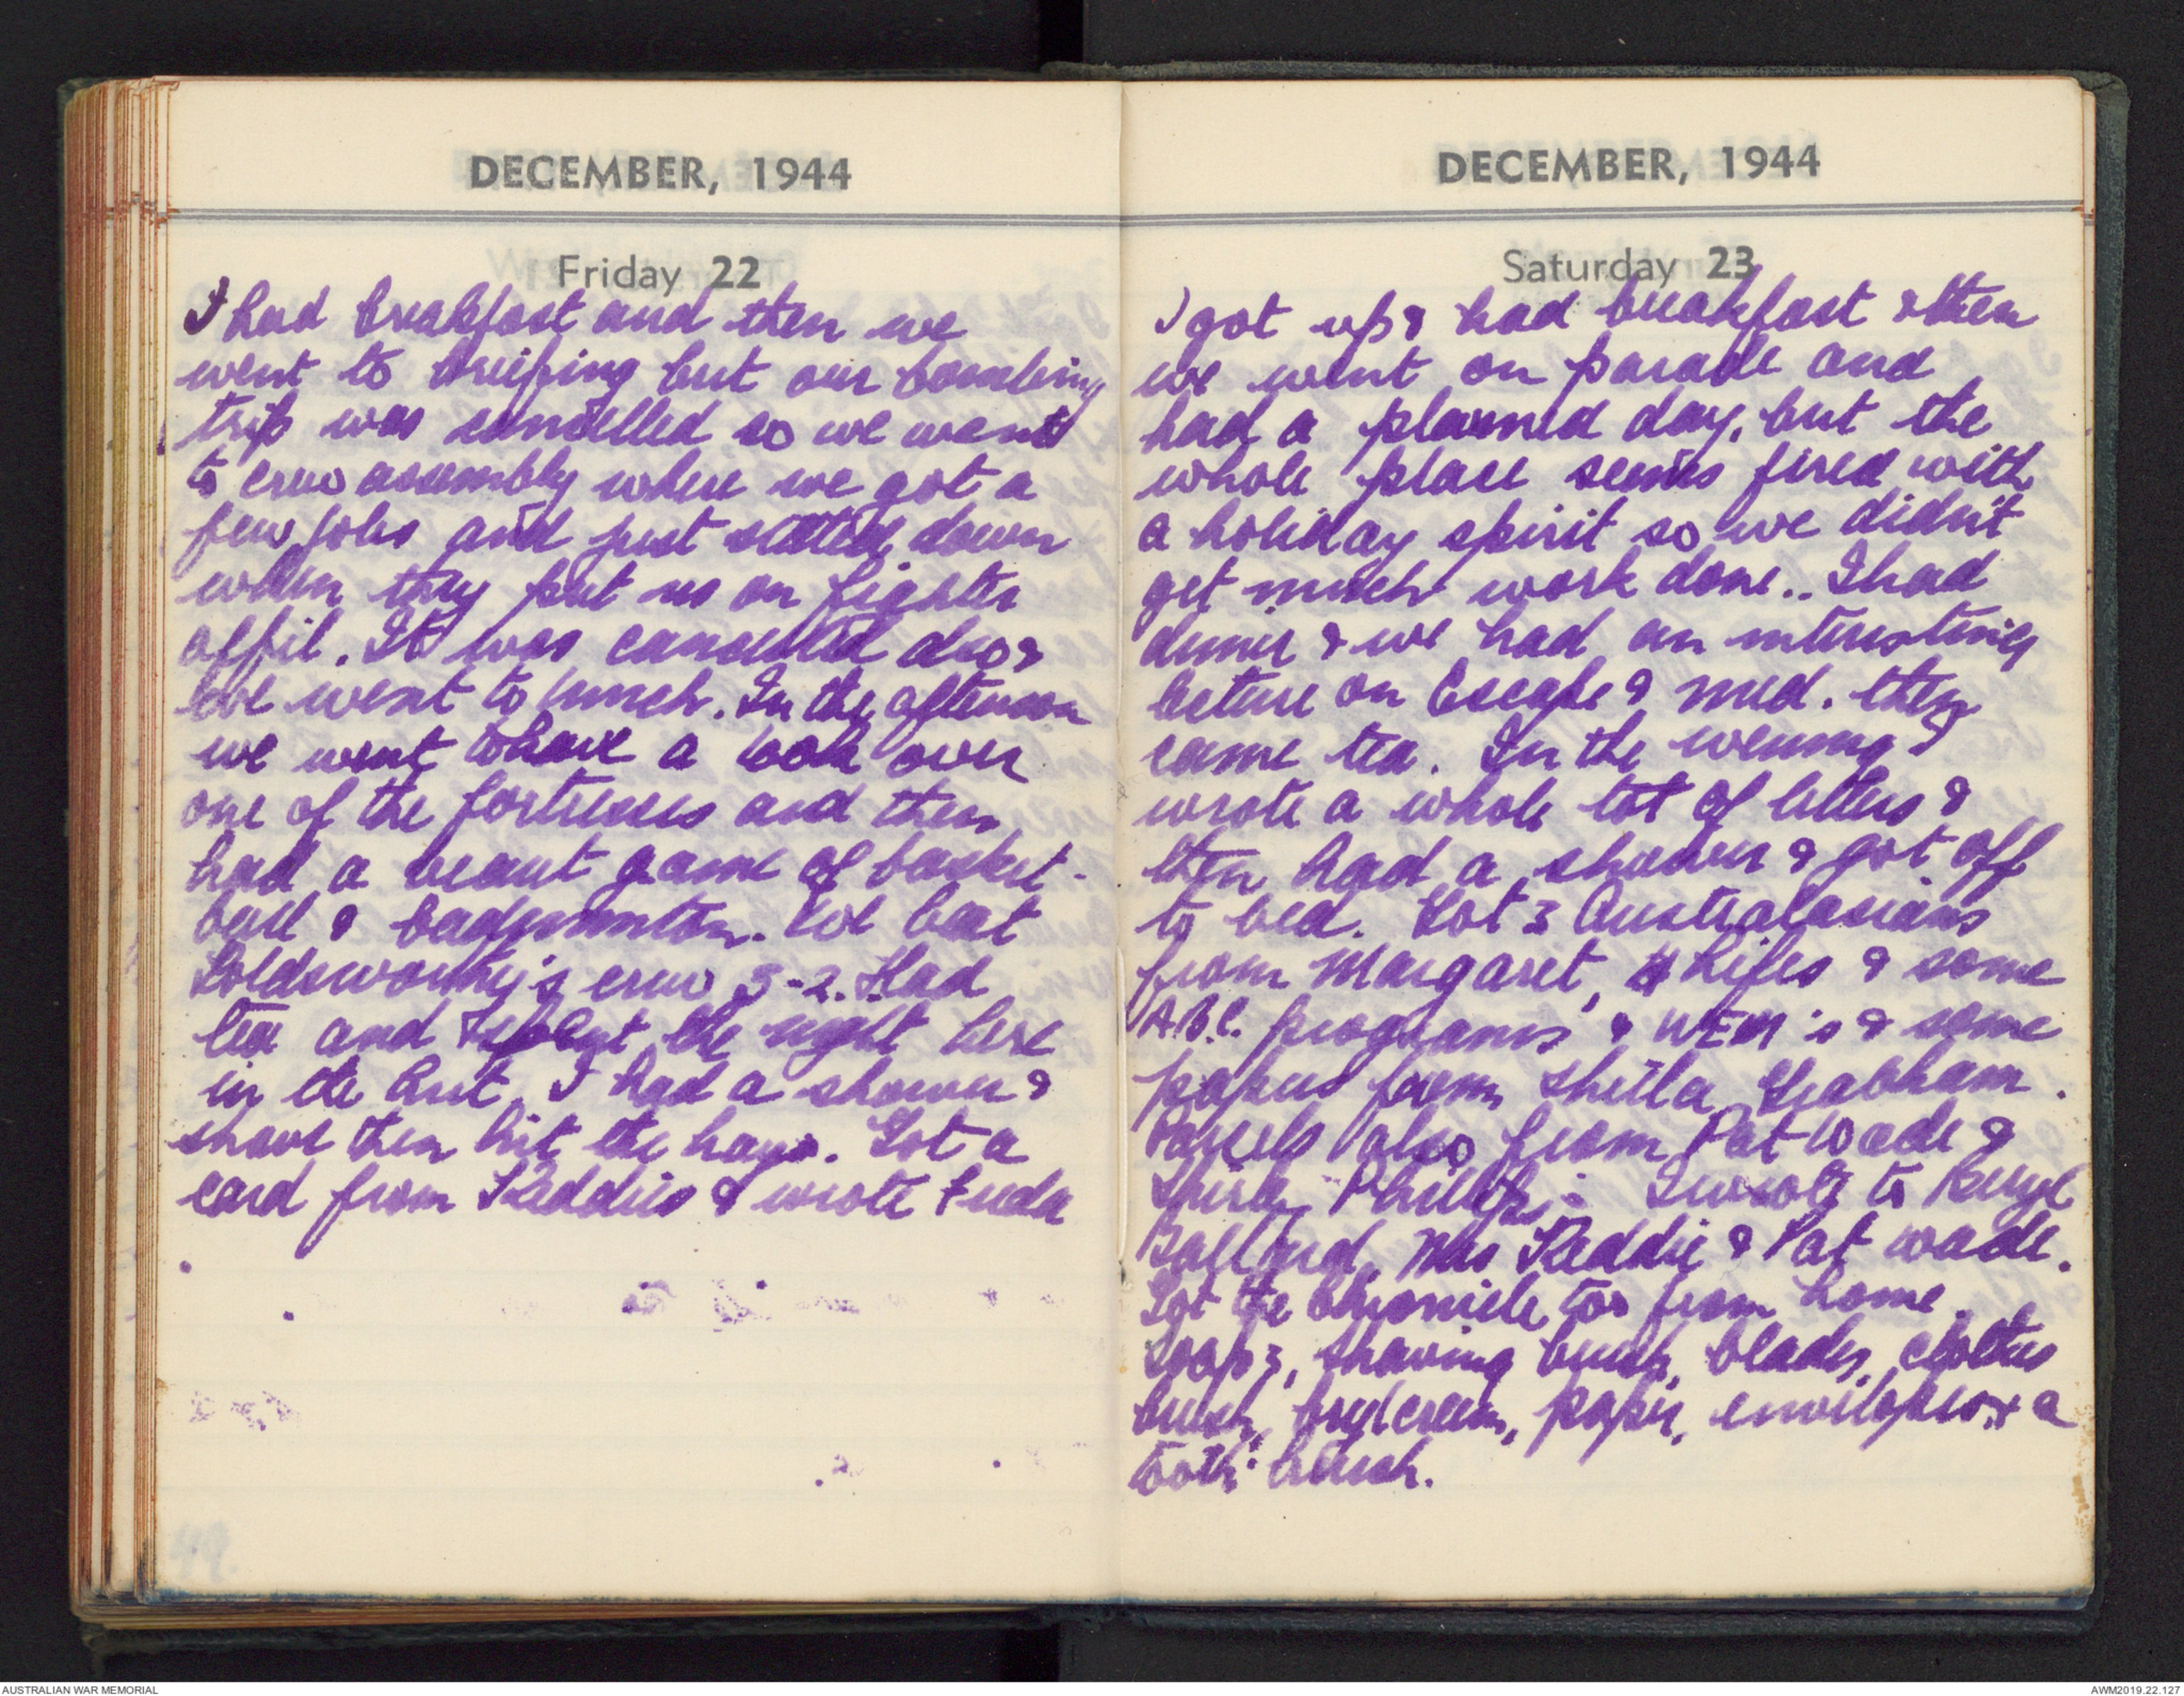 DECEMBER, 1944
Friday 22
I had breakfast and then we
went to briefing but our bombing
trip was cancelled so we went
to crew assembly where we got a
few jobs and just settled down
when they put us on fighter
affil. It was cancelled also &
we went to lunch. In the afternoon
we went to have a look over
one of the fortresses and then
had a beaut game of basket-
ball & badminton. We beat
Goldsworthy's crew 3-2. Had
tea and spent the night here
in the hut. I had a shower &
shave then hit the hay. Got a
card from Keddies & wrote
DECEMBER, 1944
Saturday 23
I got up & had breakfast & then
we went on parade and
had a planned day, but the
whole place seems fired with
a holiday spirit so we didn't
get much work done.. I had
dinner & we had an interesting
lecture on Escape & med. then
came tea. In the evening I
wrote a whole lot of letters &
then had a shower & got off
to bed. Got 3 Australasians
from Margaret, 4 Lifes & some
A.B.C. programs & WEM's & some
papers from Sheila Grabham.
Parcels also from Pat Wade &
Shirley Phillips. I wrote to Beryl
Ballard, Mrs Keddie & Pat Wade.
Got the Chronicle too from home.
Soap 3, shaving brush, blades, clothes
brush, brylcream, paper, envelopes & a
tooth brush.
AUSTRALIAN WAR MEMORIAL
AWM2019.22.127